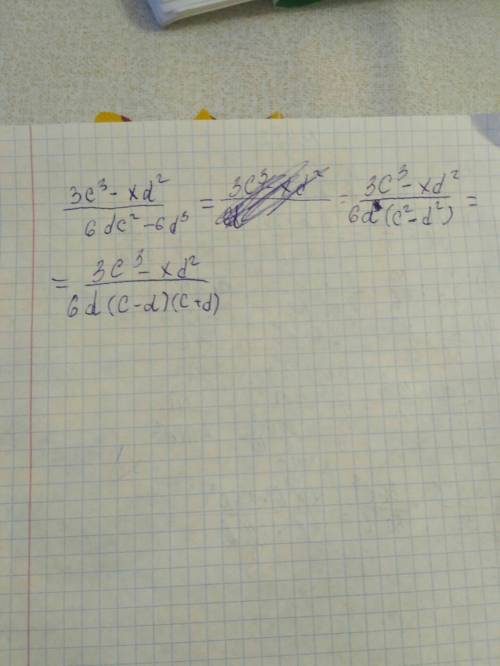 (3c³ - xd²)/(6dc² - 6d³) = = (3c³ - xd²)/(6d(c² - d²)) =
= (3c³ - xd²)/(6d(c-d)(c+d))